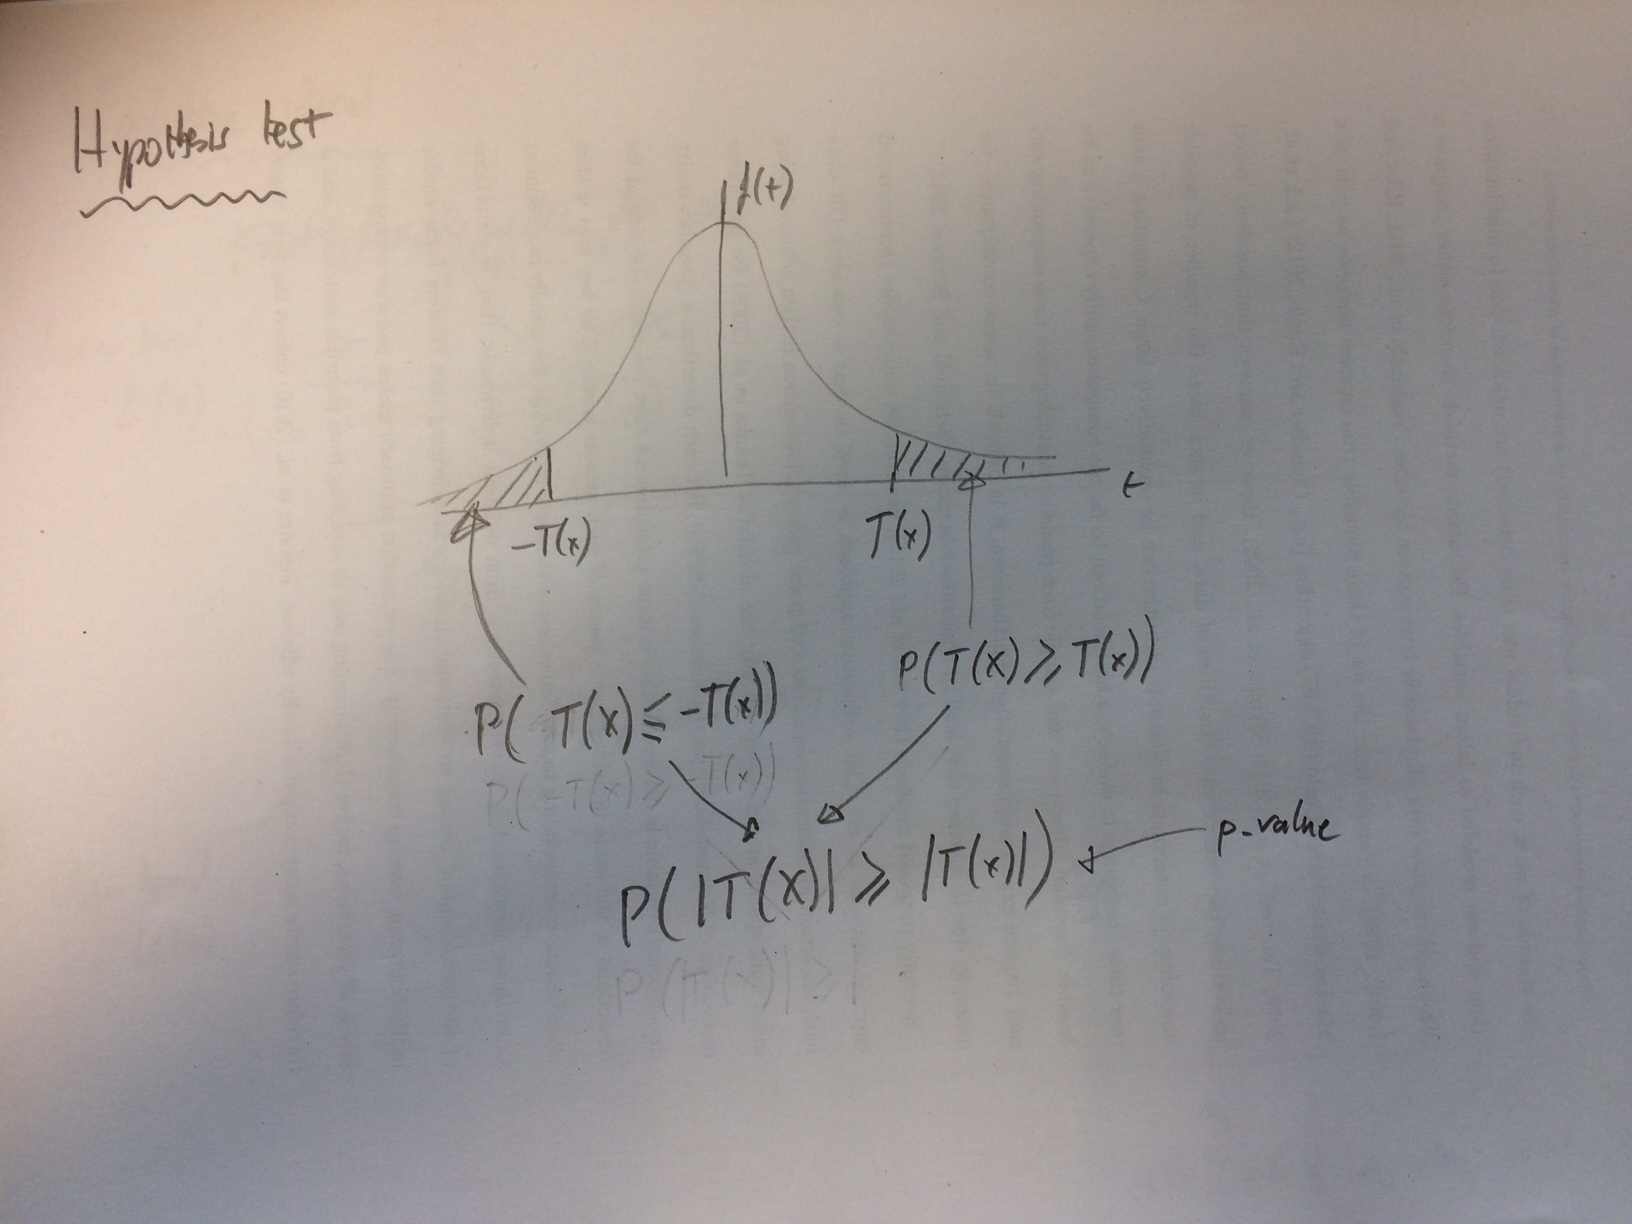 Hypothesis test
f(t)
t
-T(x)
T(x)
P(T(X) ⩾ T(x))
P( T(X) ≤ -T(x))
P(-T(x) ⩾ -T(x))
p-value
P(|T(X)| ⩾ |T(x)|)
P(|T(x)| ≥ |